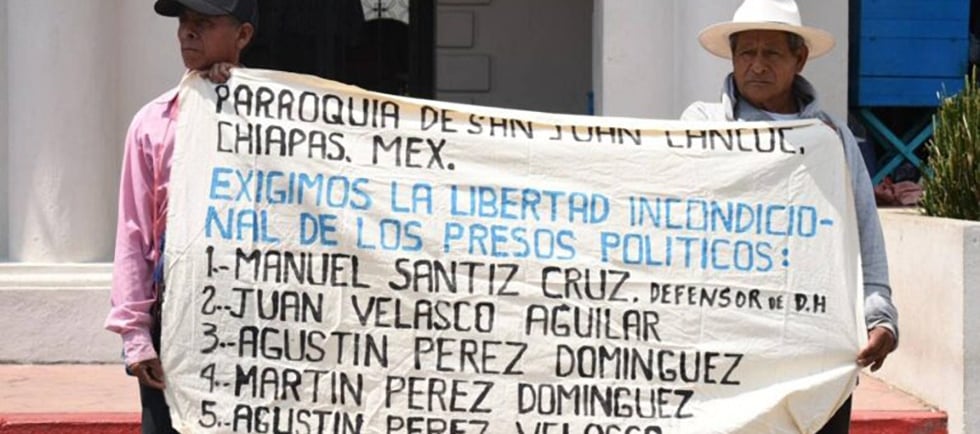 PARROQUIA DE SAN JUAN CANCUC,
CHIAPAS. MEX.
EXIGIMOS LA LIBERTAD INCONDICIO-
NAL DE LOS PRESOS POLITICOS:
1.-MANUEL SANTIZ CRUZ. DEFENSOR DE D.H
2.-JUAN VELASCO AGUILAR
3.-AGUSTIN PEREZ DOMINGUEZ
4.-MARTIN PEREZ DOMINGUEZ
5.-AGUSTIN PEREZ VELASCO